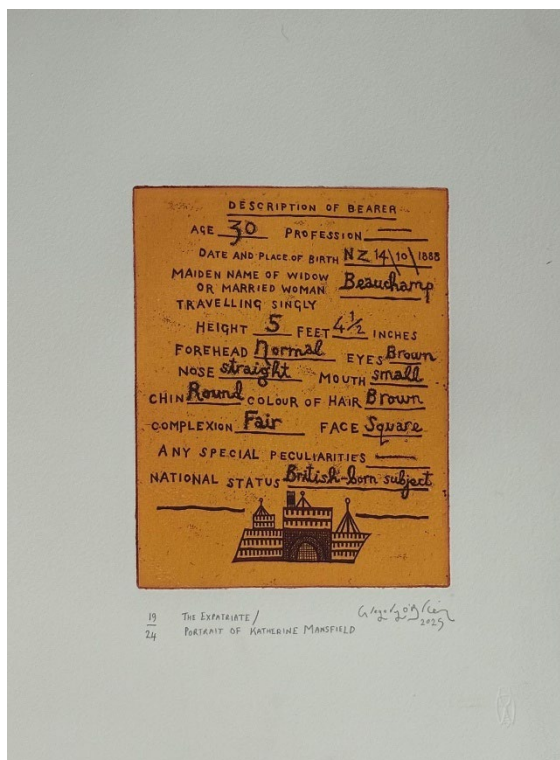 DESCRIPTION OF BEARER
AGE 30 PROFESSION —
DATE AND PLACE OF BIRTH NZ 14\10\1888
MAIDEN NAME OF WIDOW
OR MARRIED WOMAN Beauchamp
TRAVELLING SINGLY
HEIGHT 5 FEET 4 1/2 INCHES
FOREHEAD Normal EYES Brown
NOSE straight MOUTH small
CHIN Round COLOUR OF HAIR Brown
COMPLEXION Fair FACE Square
ANY SPECIAL PECULIARITIES —
NATIONAL STATUS British-born subject
19/24 THE EXPATRIATE/
PORTRAIT OF KATHERINE MANSFIELD
Gregory O'Brien
2025